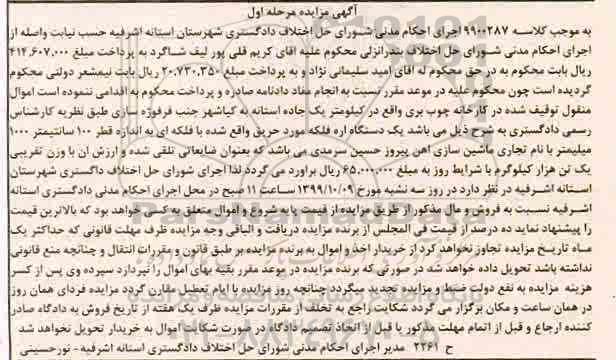 آگهی مزایده مرحله اول
به موجب کلاسه ۹۹۰۰۲۸۷ اجرای احکام مدنی شورای حل اختلاف دادگستری شهرستان استانه اشرفیه حسب نیابت واصله از
اجرای احکام مدنی شورای حل اختلاف بندرانزلی محکوم علیه اقای کریم قلی پور لیف شاگرد به پرداخت مبلغ ۴۱۴.۶۰۷.۰۰۰
ریال بابت محکوم به در حق محکوم له اقای امید سلیمانی نژاد و به پرداخت مبلغ ۲۰.۷۳۰.۳۵۰ ریال بابت نیمعشر دولتی محکوم
گردیده است چون محکوم علیه در موعد مقرر نسبت به انجام مفاد دادنامه صادره و پرداخت محکوم به اقدامی ننموده است اموال
منقول توقیف شده در کارخانه چوب بری واقع در کیلومتر یک جاده استانه به کیاشهر جنب فرفوژه سازی طبق نظریه کارشناس
رسمی دادگستری به شرح ذیل می باشد یک دستگاه اره فلکه مورد حریق واقع شده با فلکه ای به اندازه قطر ۱۰۰ سانتیمتر ۱۰۰۰
میلیمتر با نام تجاری ماشین سازی اهن پیروز حسین سرمدی می باشد که بعنوان ضایعاتی تلقی شده و ارزش ان با وزن تقریبی
یک تن هزار کیلوگرم با شرایط روز به مبلغ ۶۵.۰۰۰.۰۰۰ ریال براورد می گردد لذا اجرای شورای حل اختلاف دادگستری شهرستان
استانه اشرفیه در نظر دارد در روز سه نشبه مورخ ۱۳۹۹/۱۰/۰۹ ساعت ۱۱ صبح در محل اجرای احکام مدنی دادگستری استانه
اشرفیه نسبت به فروش و مال مذکور از طریق مزایده از قیمت پایه شروع و اموال متعلق به کسی خواهد بود که بالاترین قیمت
را پیشنهاد نماید ده درصد از قیمت فی المجلس از برنده مزایده دریافت و الباقی وجه مزایده ظرف مهلت قانونی که حداکثر یک
ماه تاریخ مزایده تجاوز نخواهد کرد از خریدار اخذ و اموال به برنده مزایده بر طبق قانون و مقررات انتقال و چنانچه منع قانونی
نداشته باشد تحویل داده خواهد شد در صورتی که برنده مزایده در موعد مقرر بقیه بهای اموال را نپردازد سپرده وی پس از کسر
هزینه مزایده به نفع دولت ضبط و مزایده تجدید میگردد چنانچه روز مزایده با ایام تعطیل مقارن گردد مزایده فردای همان روز
در همان ساعت و مکان برگزار می گردد شکایت راجع به تخلف از مقررات مزایده ظرف یک هفته از تاریخ فروش به دادگاه صادر
کننده ارجاع و قبل از اتمام مهلت مذکور یا قبل از اتخاذ تصمیم دادگاه در صورت شکایت اموال به خریدار تحویل نخواهد شد
ح ۲۲۶۱ مدیر اجرای احکام مدنی شورای حل اختلاف دادگستری استانه اشرفیه - نورحسینی